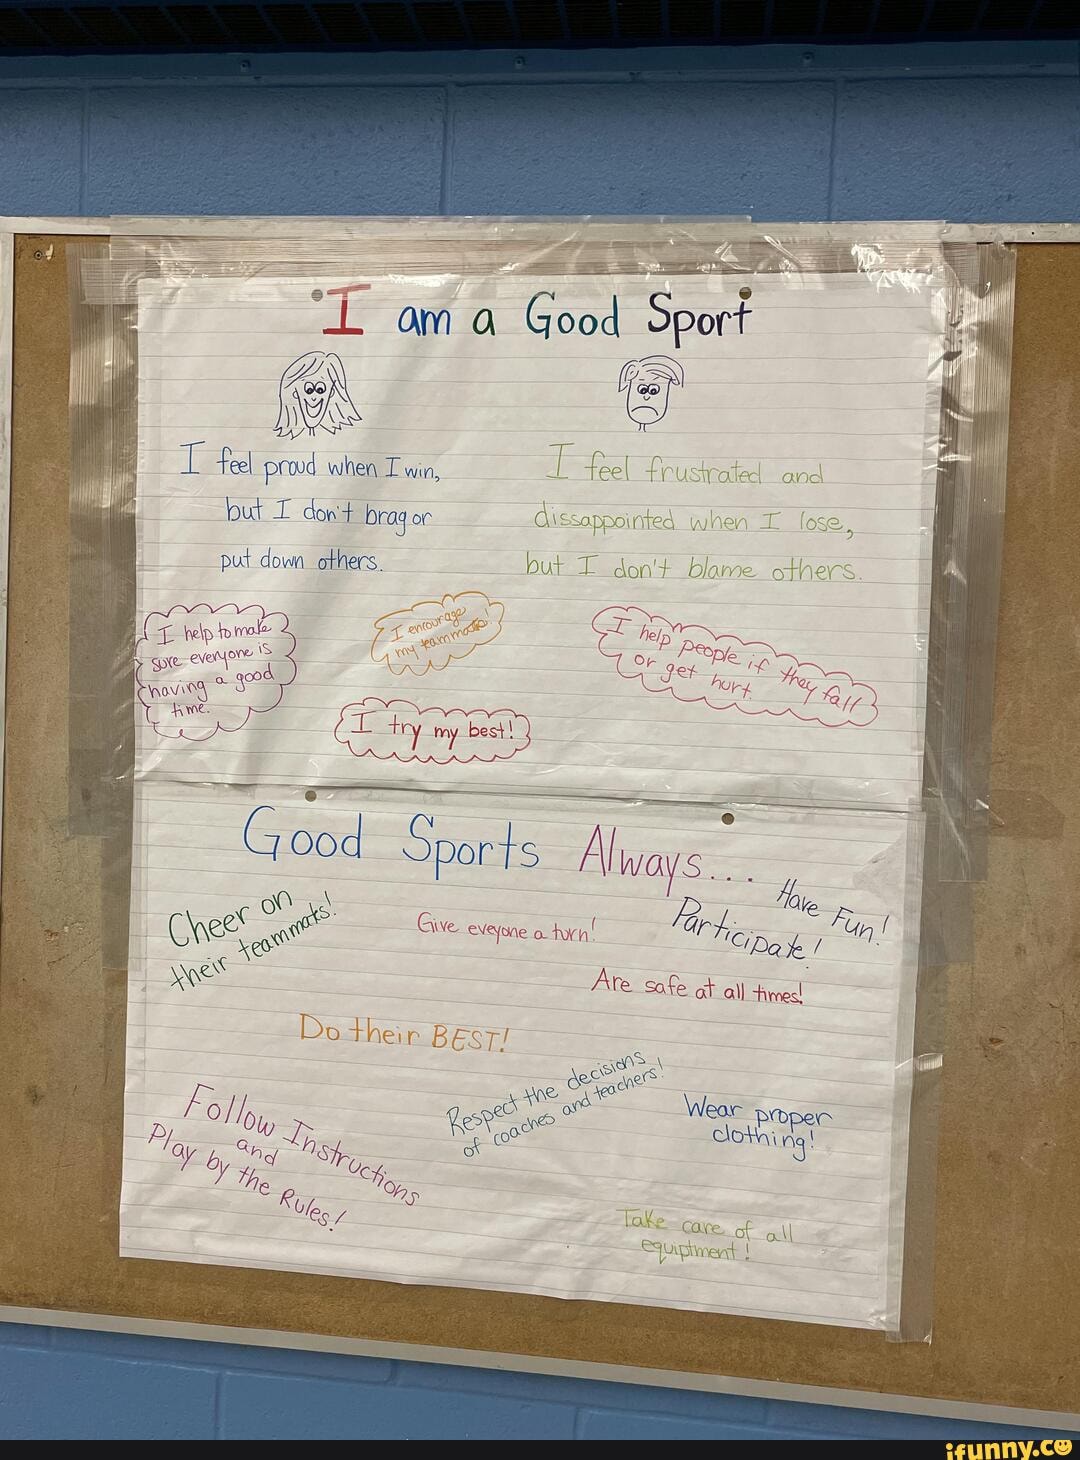 I am a Good Sport
I feel proud when I win,
but I don't brag or
put down others.
I feel frustrated and
dissappointed when I lose,
but I don't blame others.
I help to make
sure everyone is
having a good
time.
I encourage
my teammates!
I help people if they fall
or get hurt.
I try my best!
Good Sports Always...
Cheer on
their teammats!
Give eveyone a turn!
Participate!
Have Fun!
Are safe at all times!
Do their BEST!
Respect the decisions
of coaches and teachers!
Follow Instructions
and
Play by the Rules!
Wear proper
clothing!
Take care of all
equiptment!
ifunny.co